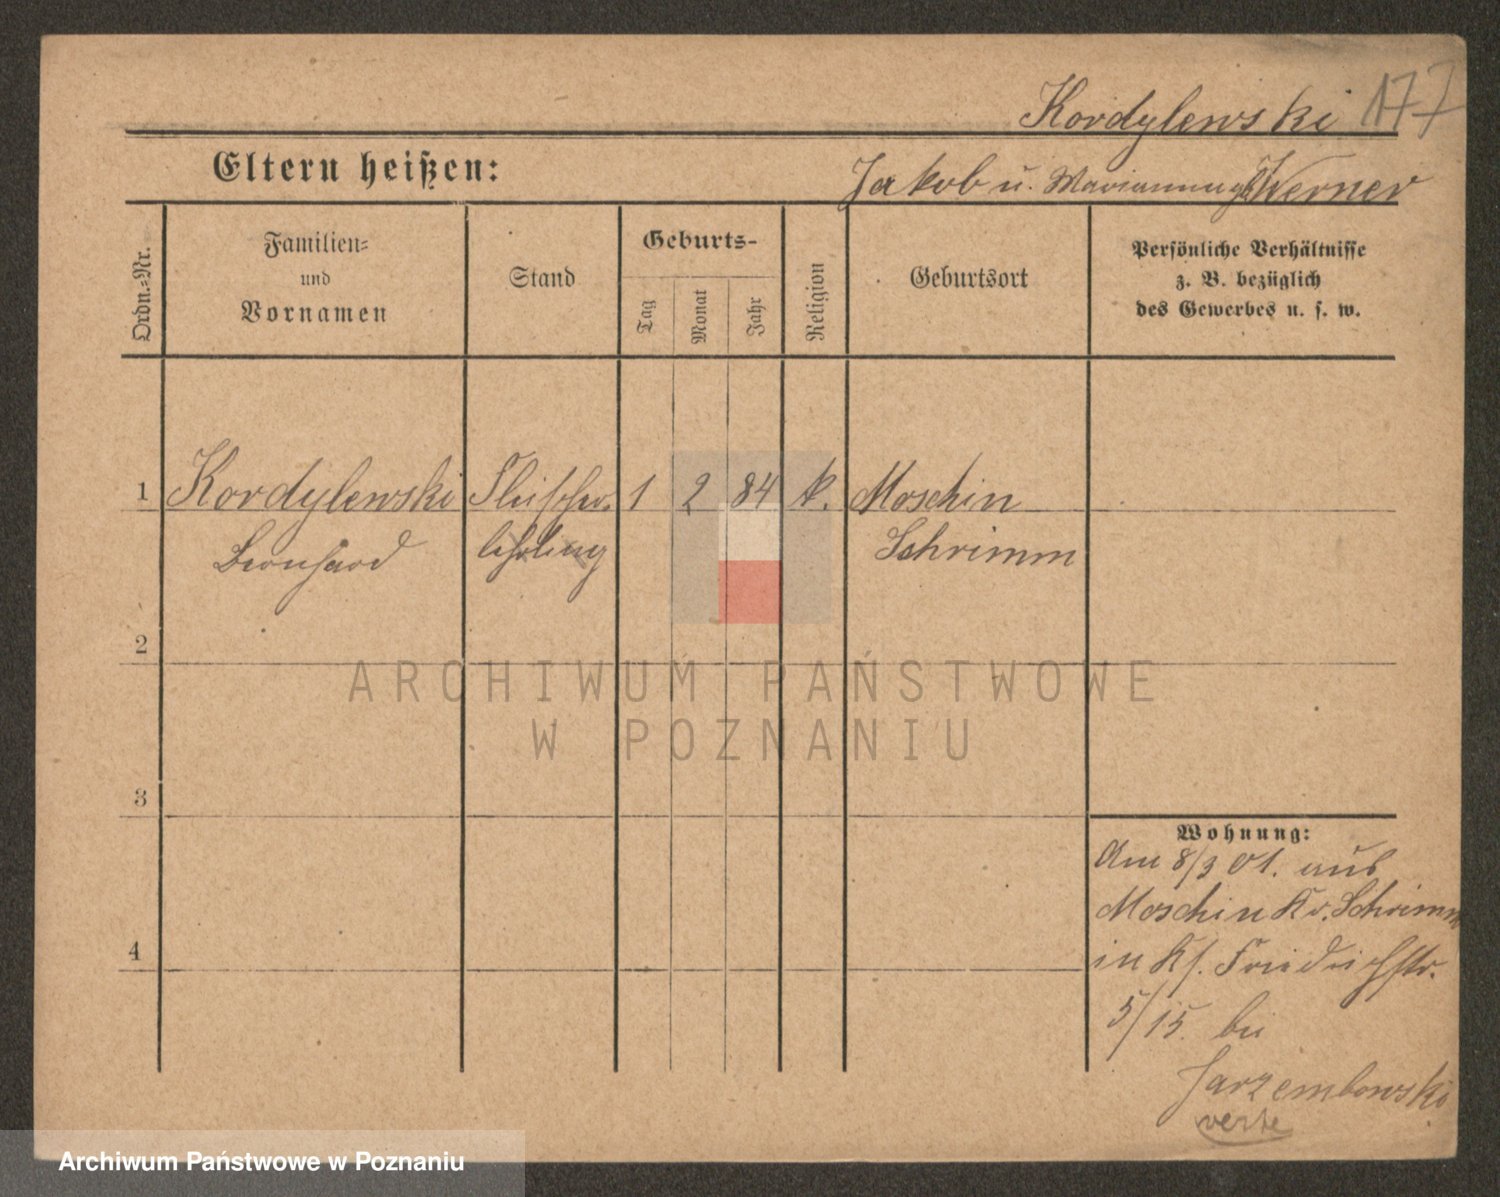 Kordylewski 177
Eltern heißen: Jakob u. Marianna geb. Werner
Ordn.-Nr.
Familien-
und
Vornamen
Stand
Geburts-
Tag
Monat
Jahr
Religion
Geburtsort
Persönliche Verhältnisse
z. B. bezüglich
des Gewerbes u. s. w.
1 Kordylewski Fleischer- 1 2 84 k. Moschin
Bernhard lehrling Schrimm
2
3
4
Wohnung:
Am 8/3 01. aus
Moschin Kr. Schrimm
in Kf. Friedrichstr.
5/15. bei
Jarzembowski
verte
ARCHIWUM PAŃSTWOWE
W POZNANIU
Archiwum Państwowe w Poznaniu